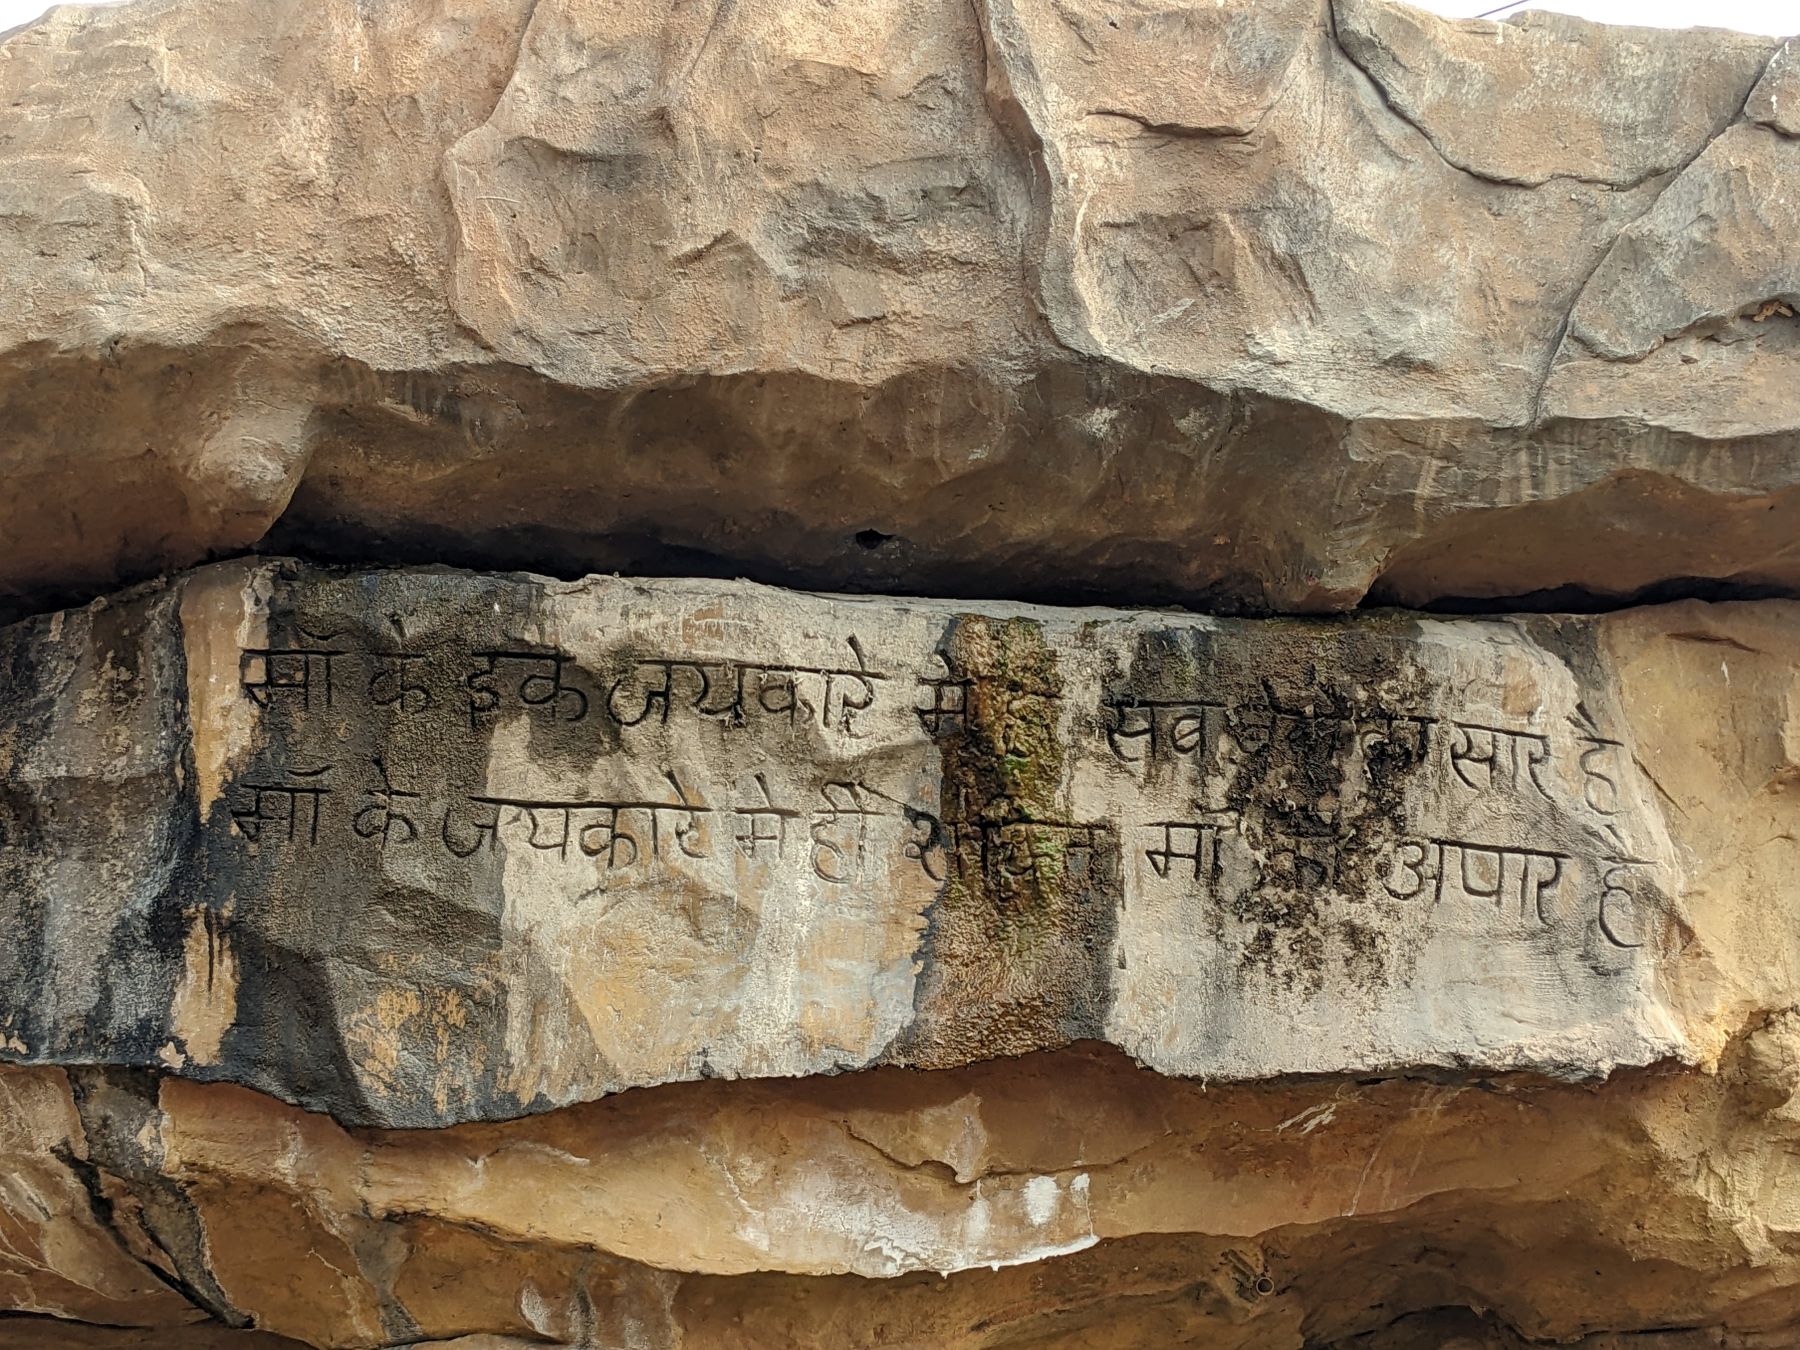 माँ के इक जयकारे मे ही सब बेडे का सार है
माँ के जयकारे मे ही शक्ति माँ की अपार है